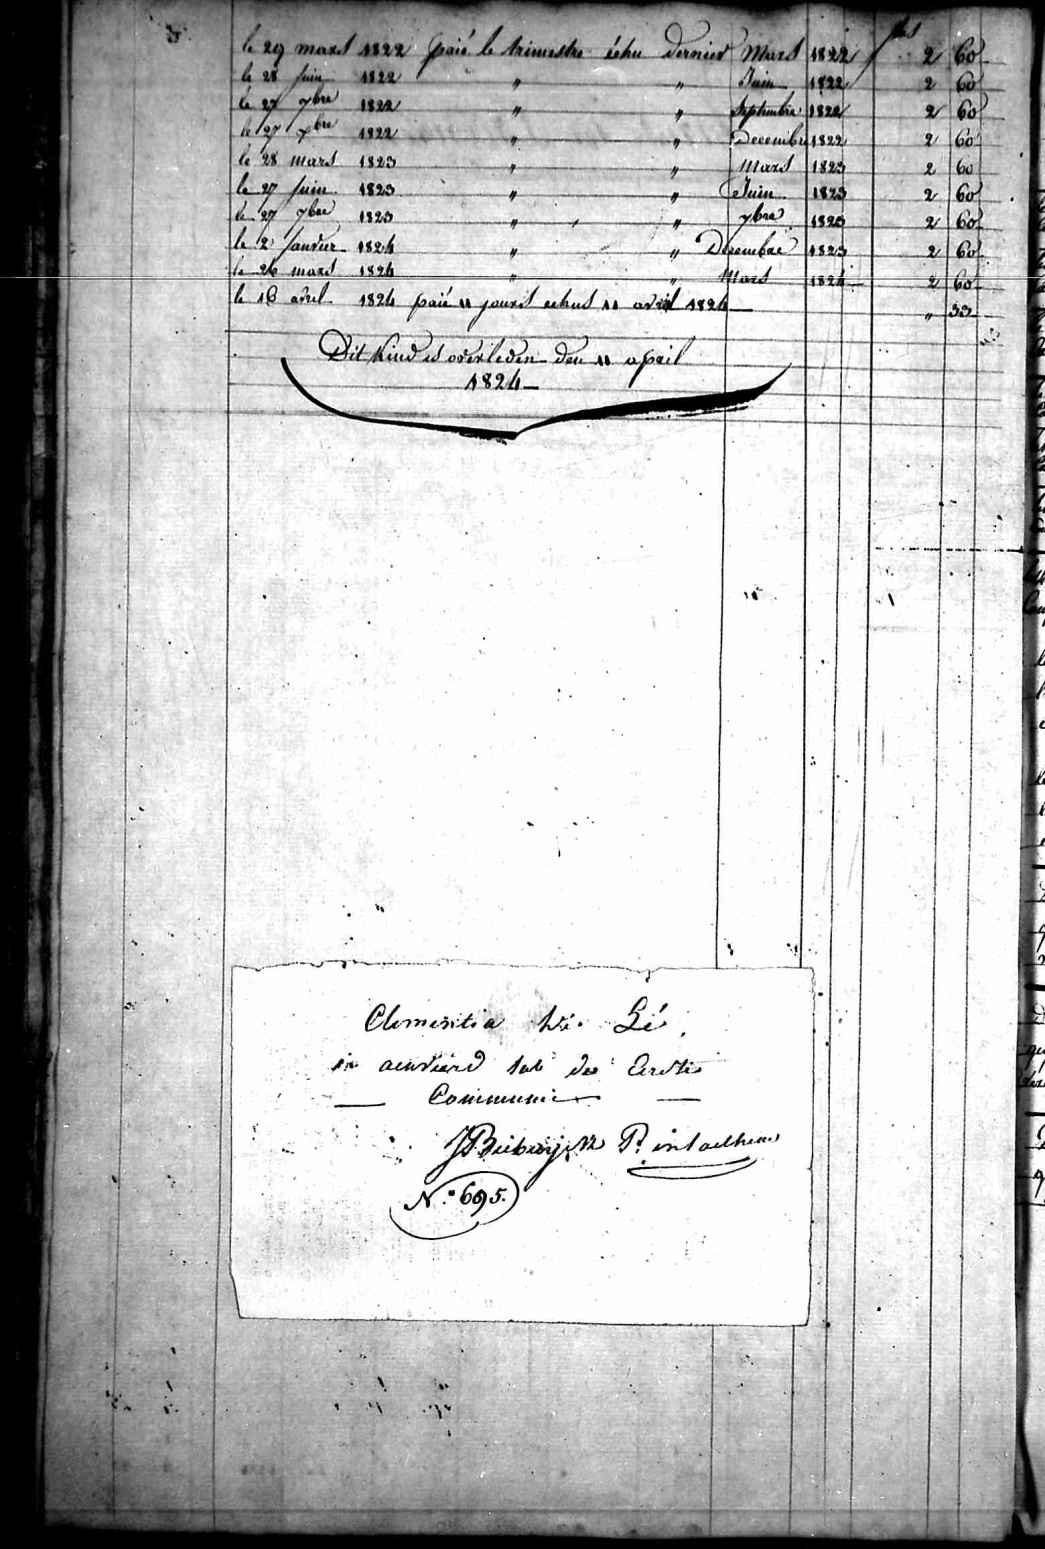 fls
le 29 mars 1822 paié le trimestre échu dernier Mars 1822 2 60
le 28 Juin 1822 " " Juin 1822 2 60
le 27 7bre 1822 " " Septembre 1822 2 60
le 27 Xbre 1822 " " Decembre 1822 2 60
le 28 mars 1823 " " Mars 1823 2 60
le 27 Juin 1823 " " Juin 1823 2 60
le 27 7bre 1823 " " 7bre 1823 2 60
le 2 Janvier 1824 " " Decembre 1823 2 60
le 26 mars 1824 " " Mars 1824 2 60
le 16 avril 1824 paié 11 jours echus 11 avril 1824 " 33
Dit kind is overleden den 11 april
1824
Clementia
de Eerste
Communie
N.° 695.